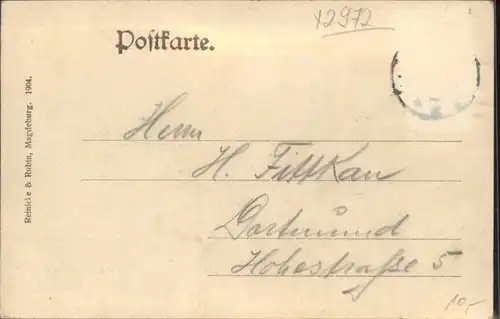 x2972
Postkarte.
Herrn
H. Fittkau
Dortmund
Hohestraße 5
10,-
Reinicke & Rubin, Magdeburg. 1904.